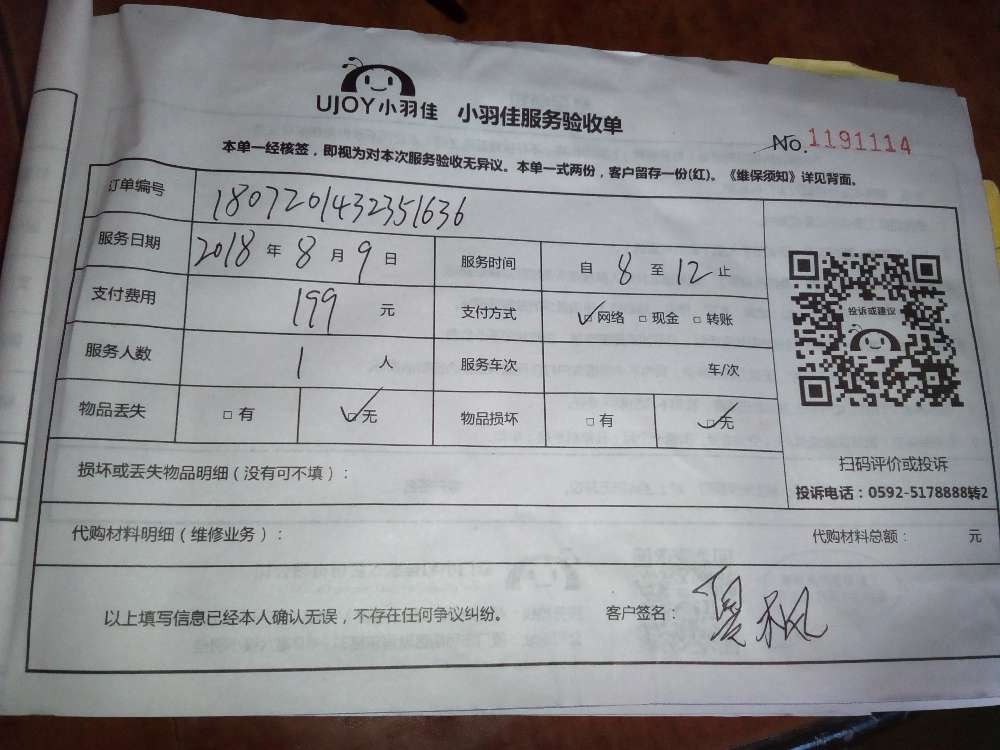 UJOY小羽佳 小羽佳服务验收单
No. 1191114
本单一经核签，即视为对本次服务验收无异议。本单一式两份，客户留存一份(红)。《维保须知》详见背面。
订单编号 1807201432351636
服务日期 2018年8月9日 服务时间 自8至12止
支付费用 199元 支付方式 ☑网络 □现金 □转账
服务人数 1人 服务车次 车/次
物品丢失 □有 ☑无 物品损坏 □有 ☑无
投诉或建议
扫码评价或投诉
投诉电话：0592-5178888转2
损坏或丢失物品明细（没有可不填）：
代购材料明细（维修业务）： 代购材料总额： 元
以上填写信息已经本人确认无误，不存在任何争议纠纷。 客户签名：夏枫